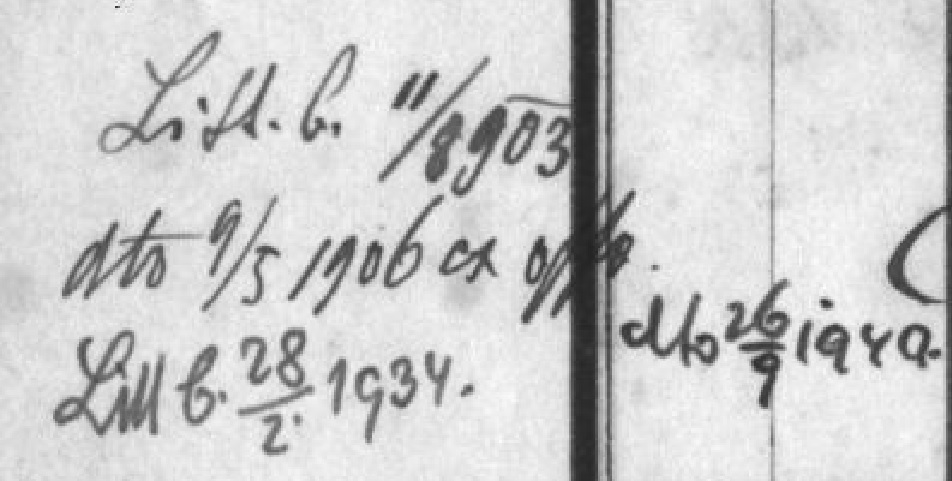 Litt. b. 11/8 903
dto 9/5 1906 ex offo.
Litt b. 28/2. 1934.
dto 26/9 1940.